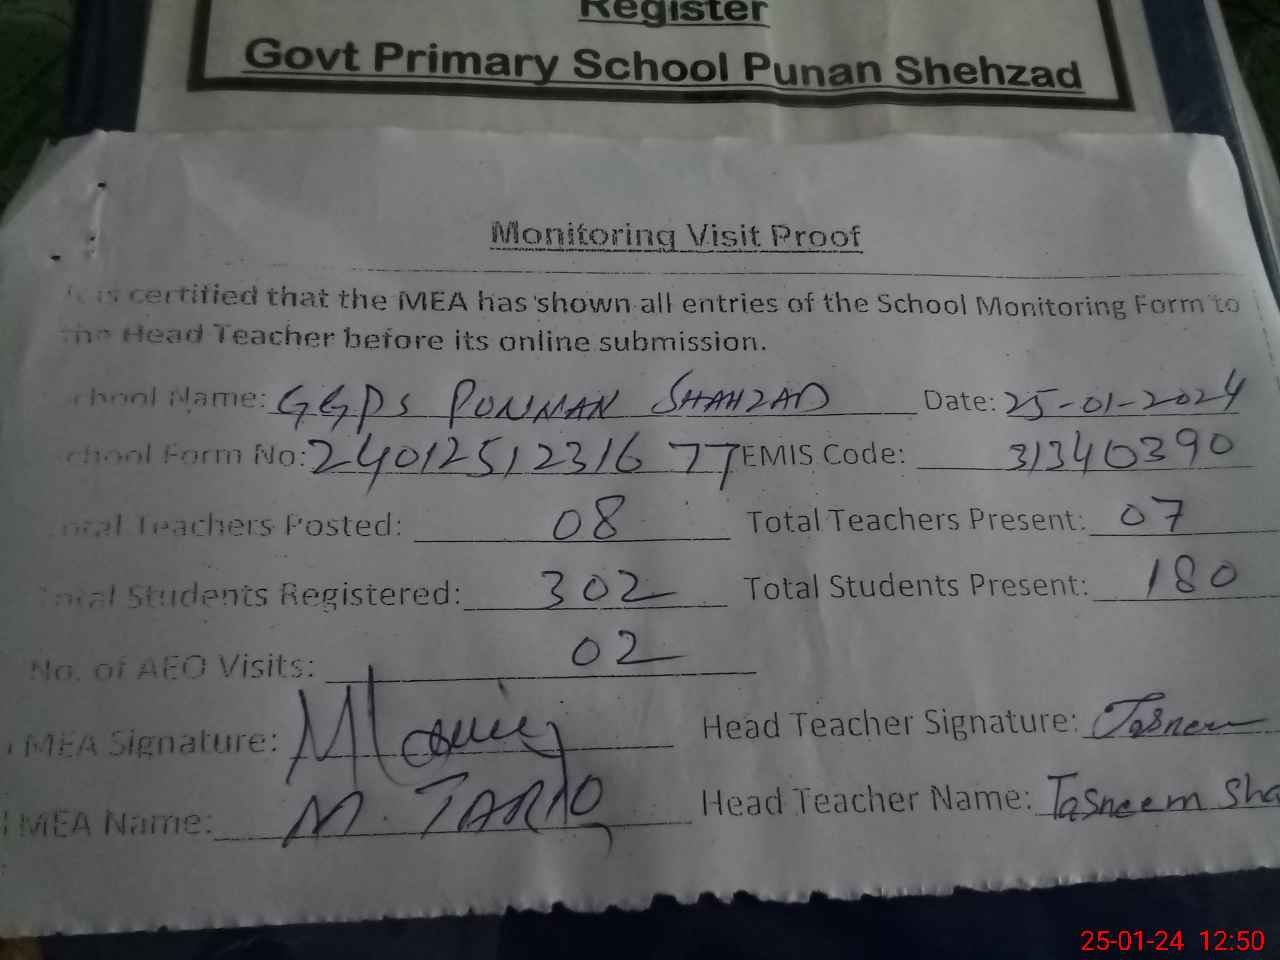 Register
Govt Primary School Punan Shehzad
Monitoring Visit Proof
is certified that the MEA has shown all entries of the School Monitoring Form to
the Head Teacher before its online submission.
chool Name: GGPS PUNMAN SHAHZAD Date: 25-01-2024
chool Form No: 24012512316 77 EMIS Code: 31340390
otal Teachers Posted: 08 Total Teachers Present: 07
Total Students Registered: 302 Total Students Present: 180
No. of AEO Visits: 02
MEA Signature: Head Teacher Signature: Tasneem
MEA Name: M. TARIQ Head Teacher Name: Tasneem Sha
25-01-24 12:50